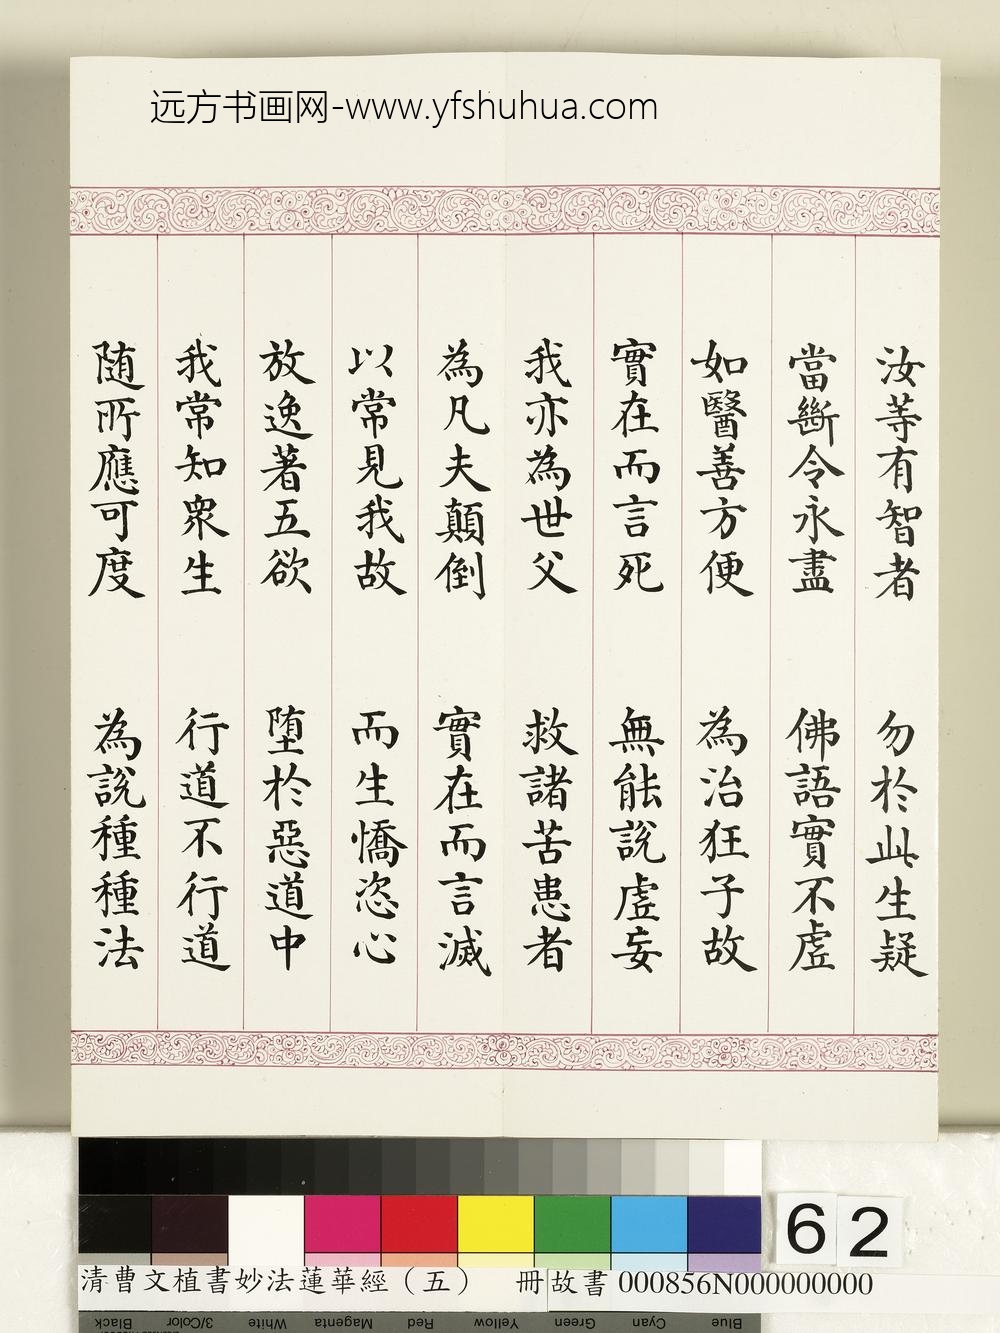 远方书画网-www.yfshuhua.com
汝等有智者 勿於此生疑
當斷令永盡 佛語實不虛
如醫善方便 為治狂子故
實在而言死 無能說虛妄
我亦為世父 救諸苦患者
為凡夫顛倒 實在而言滅
以常見我故 而生憍恣心
放逸著五欲 墮於惡道中
我常知眾生 行道不行道
随所應可度 為說種種法
62
清曹文植書妙法蓮華經（五） 冊故書000856N000000000
Black 3/Color White Magenta Red Yellow Green Cyan Blue